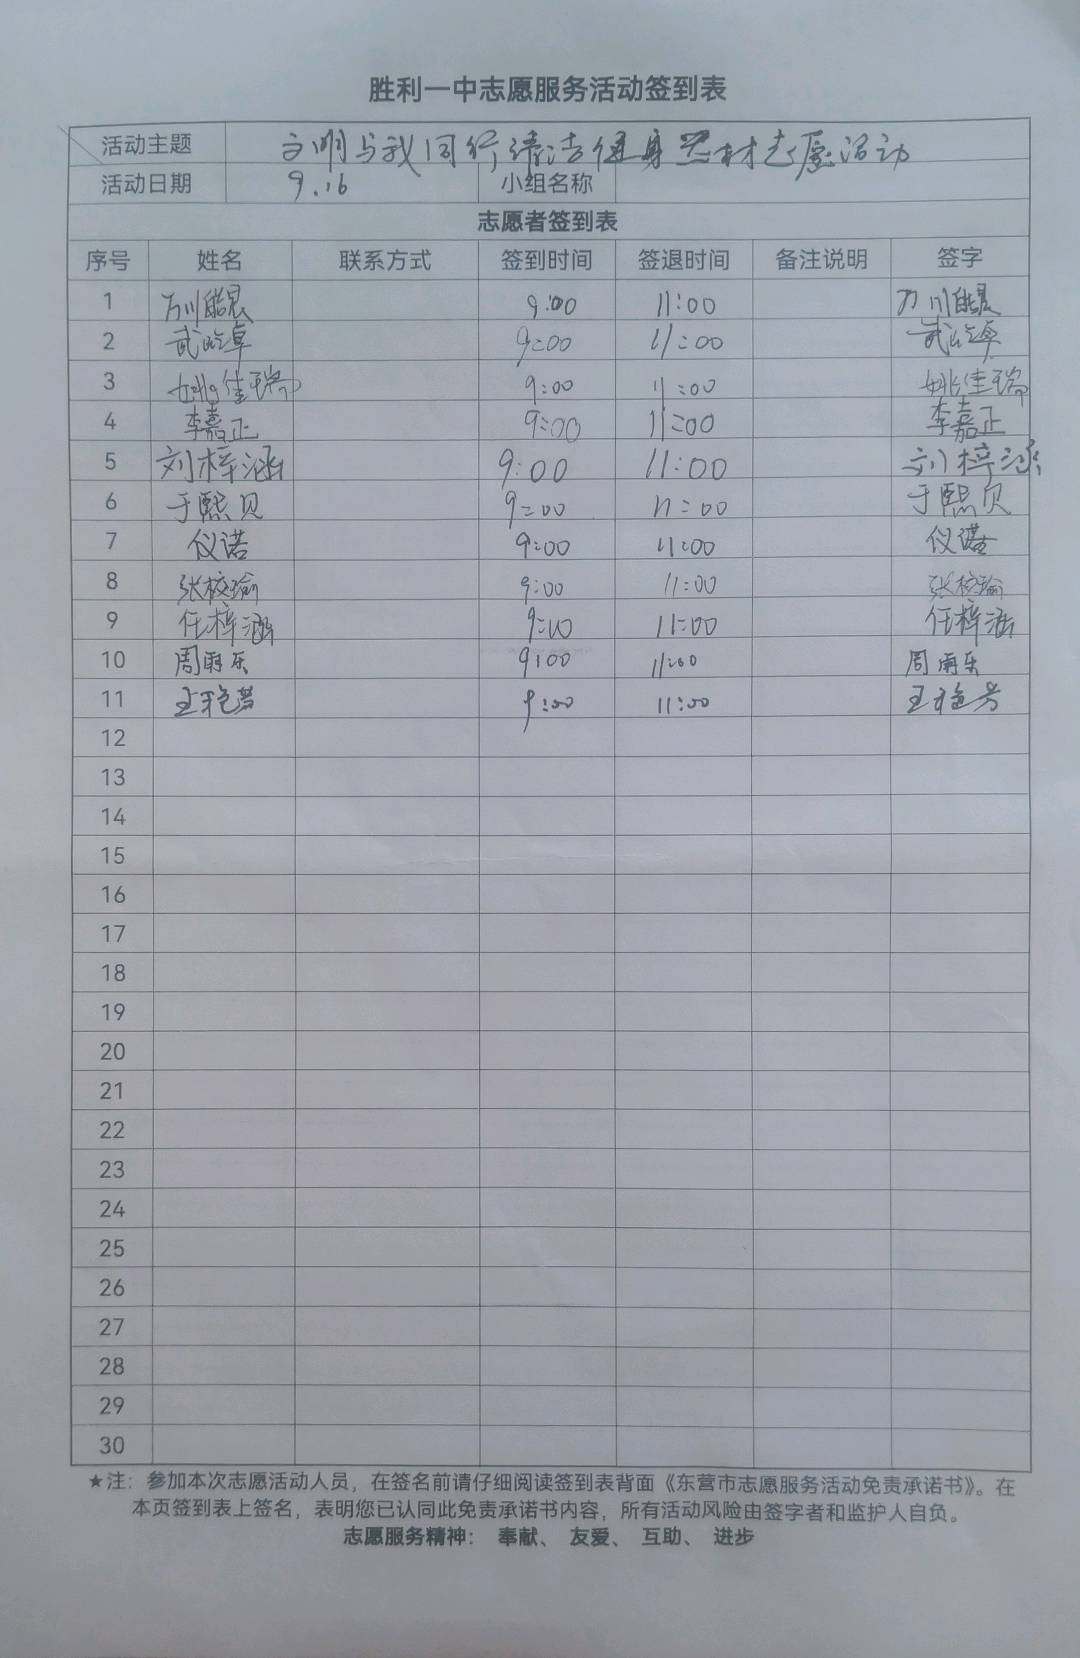 胜利一中志愿服务活动签到表
活动主题 文明与我同行清洁健身器材志愿活动
活动日期 9.16 小组名称
志愿者签到表
序号 姓名 联系方式 签到时间 签退时间 备注说明 签字
1 9:00 11:00
2 9:00 11:00
3 姚佳瑞 9:00 11:00 姚佳瑞
4 李嘉正 9:00 11:00 李嘉正
5 刘梓涵 9:00 11:00 刘梓涵
6 于熙贝 9:00 11:00 于熙贝
7 仪诺 9:00 11:00 仪诺
8 9:00 11:00
9 任梓涵 11:00 任梓涵
10 周雨乐 9:00 11:00 周雨乐
11 9:00 11:00
12
13
14
15
16
17
18
19
20
21
22
23
24
25
26
27
28
29
30
★注：参加本次志愿活动人员，在签名前请仔细阅读签到表背面《东营市志愿服务活动免责承诺书》。在
本页签到表上签名，表明您已认同此免责承诺书内容，所有活动风险由签字者和监护人自负。
志愿服务精神： 奉献、 友爱、 互助、 进步